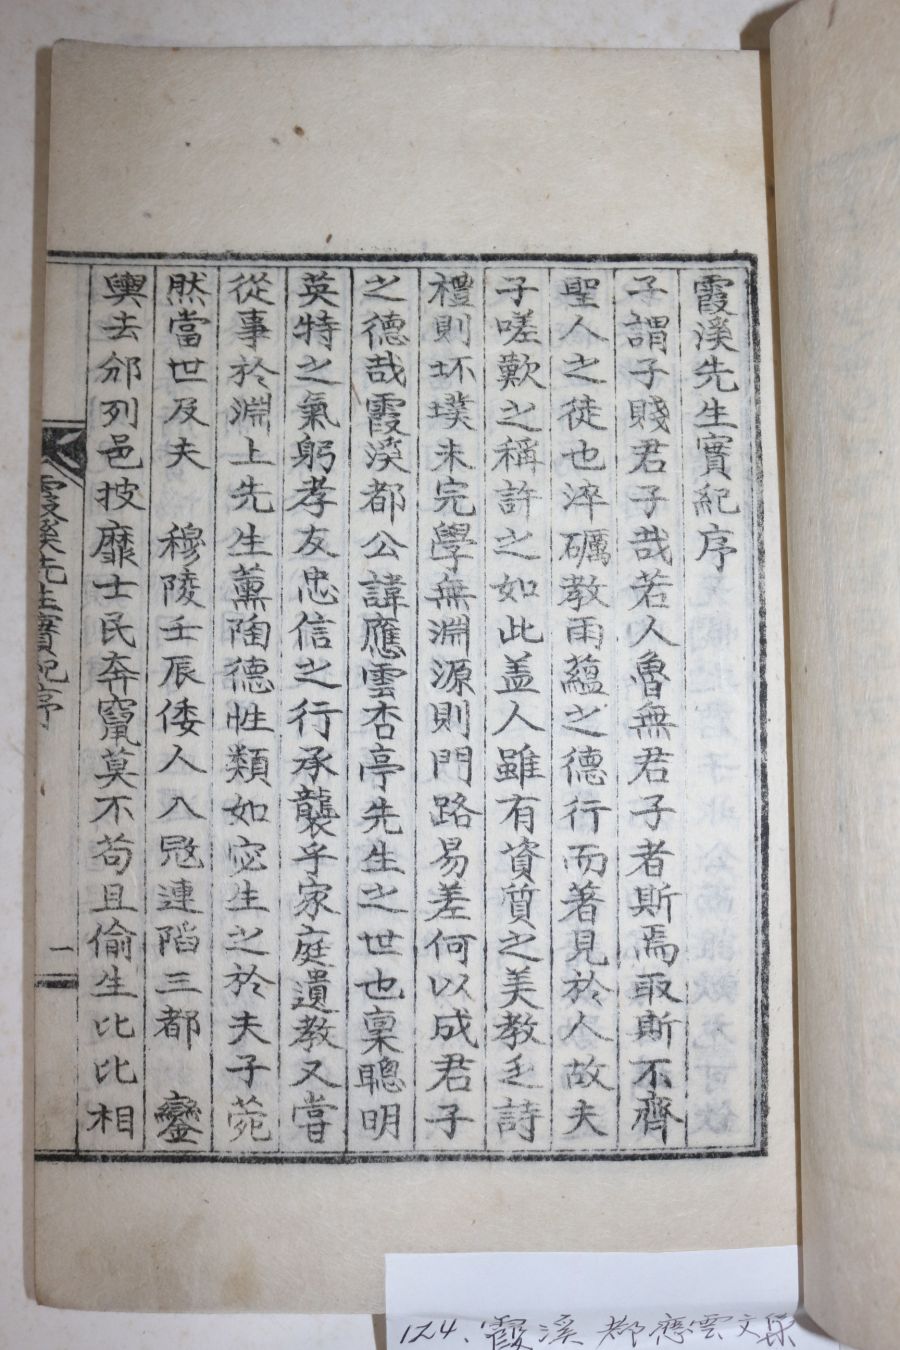 霞溪先生實紀序
子謂子賤君子哉若人魯無君子者斯焉取斯不齊
聖人之徒也淬礪教雨蘊之德行而著見於人故夫
子嗟歎之稱許之如此盖人雖有資質之美教乏詩
禮則坏墣未完學無淵源則門路易差何以成君子
之德哉霞溪都公諱應雲杏亭先生之世也稟聰明
英特之氣躬孝友忠信之行承襲乎家庭遺教又嘗
從事於淵上先生薰陶德性類如宓生之於夫子菀
然當世及夫 穆陵壬辰倭人入冦連陷三都 鑾
輿去邠列邑披靡士民奔竄莫不苟且偷生比比相
霞溪先生實紀序
一
124. 霞溪 都應雲文集